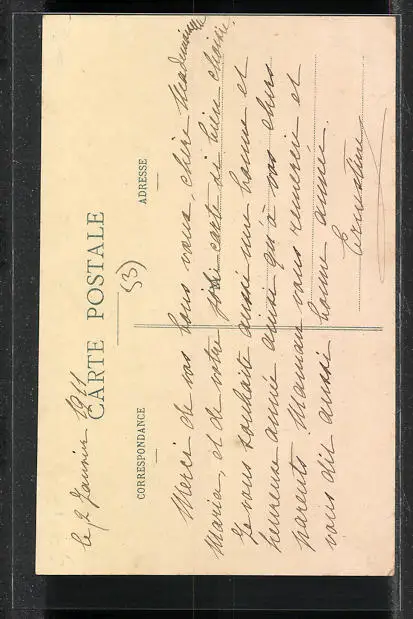 le 2 Janvier 1911
CARTE POSTALE
53)
CORRESPONDANCE
ADRESSE
Merci de vos bons vœux, chère Mademoiselle
Maria, et de votre jolie carte si bien choisie.
Je vous souhaite aussi une bonne et
heureuse année ainsi qu'à vos chers
parents. Maman vous remercie et
vous dit aussi bonne année.
Ernestine